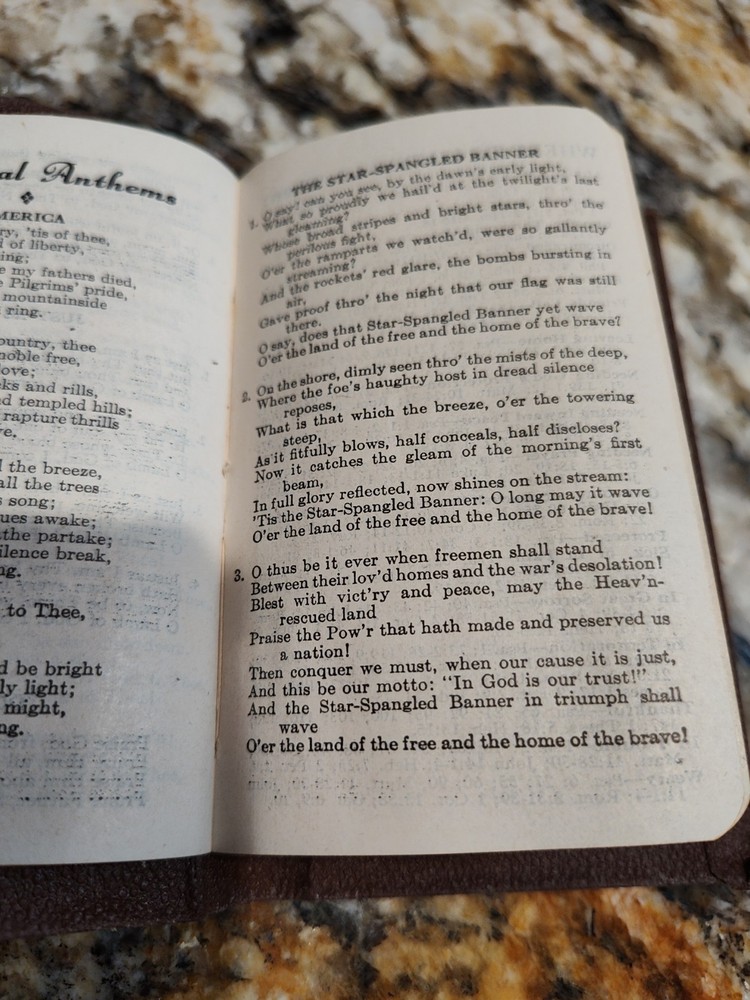 al Anthems
MERICA
ry, 'tis of thee,
d of liberty,
ing;
e my fathers died,
e Pilgrims' pride,
mountainside
ring.
ountry, thee
noble free,
ove;
ks and rills,
d templed hills;
rapture thrills
ve.
l the breeze,
all the trees
s song;
ues awake;
the partake;
ilence break,
ng.
to Thee,
d be bright
ly light;
might,
ng.
THE STAR-SPANGLED BANNER
1. O say! can you see, by the dawn's early light,
What so proudly we hail'd at the twilight's last
gleaming?
Whose broad stripes and bright stars, thro' the
perilous fight,
O'er the ramparts we watch'd, were so gallantly
streaming?
And the rockets' red glare, the bombs bursting in
air,
Gave proof thro' the night that our flag was still
there.
O say, does that Star-Spangled Banner yet wave
O'er the land of the free and the home of the brave?
2. On the shore, dimly seen thro' the mists of the deep,
Where the foe's haughty host in dread silence
reposes,
What is that which the breeze, o'er the towering
steep,
As it fitfully blows, half conceals, half discloses?
Now it catches the gleam of the morning's first
beam,
In full glory reflected, now shines on the stream:
'Tis the Star-Spangled Banner: O long may it wave
O'er the land of the free and the home of the brave!
3. O thus be it ever when freemen shall stand
Between their lov'd homes and the war's desolation!
Blest with vict'ry and peace, may the Heav'n-
rescued land
Praise the Pow'r that hath made and preserved us
a nation!
Then conquer we must, when our cause it is just,
And this be our motto: "In God is our trust!"
And the Star-Spangled Banner in triumph shall
wave
O'er the land of the free and the home of the brave!